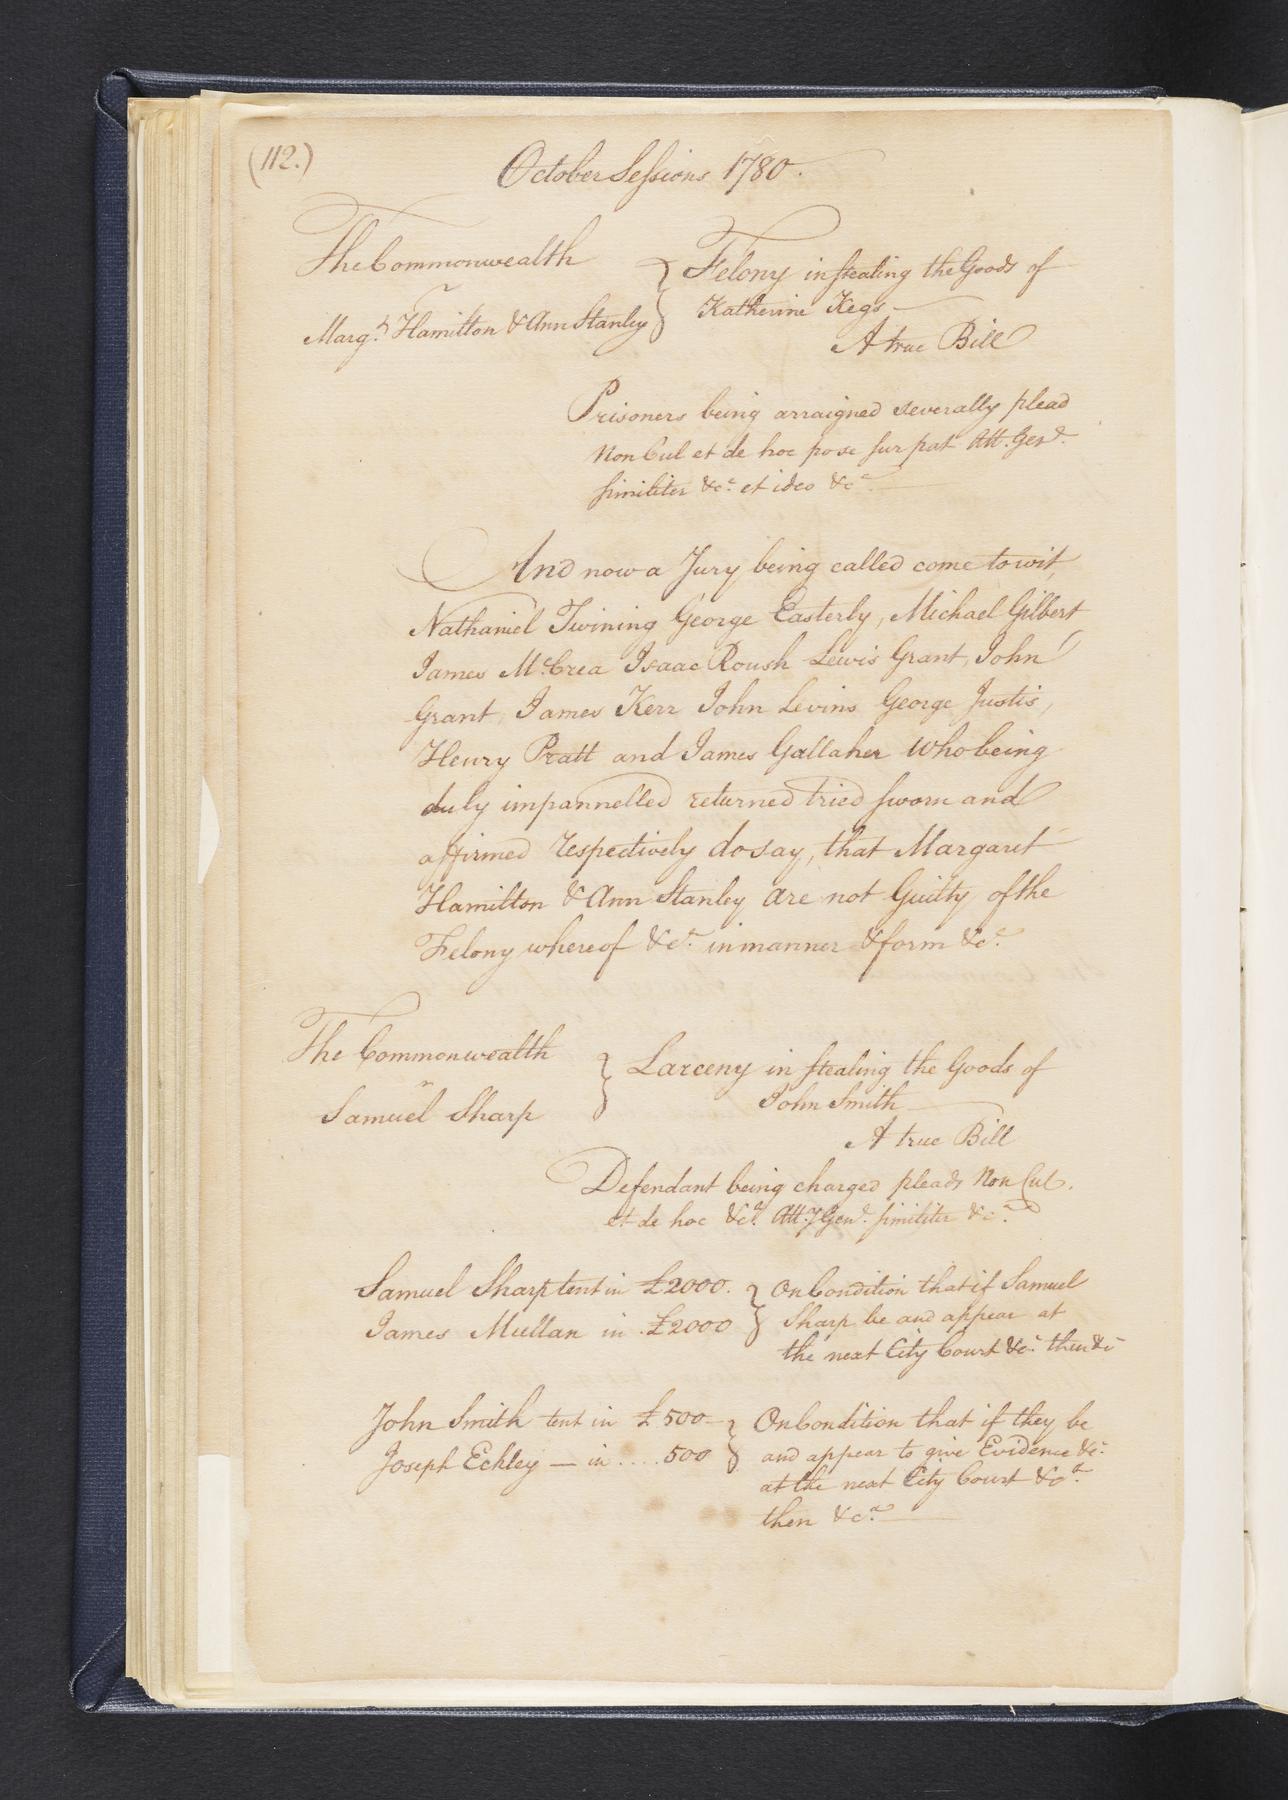 (112.)
October Sessions 1780.
The Commonwealth
Marg.t Hamilton & Ann Stanley
Felony in stealing the Goods of
Katherine Kegs
A true Bill
Prisoners being arraigned severally plead
Non Cul et de hoc po se sur pat Att. Genl.
similiter &c.a et ideo &c.a
And now a Jury being called come to wit,
Nathaniel Twining George Easterly, Michael Gilbert
James McCrea Isaac Roush Lewis Grant, John
Grant, James Kerr John Levins George Justis,
Henry Pratt and James Gallaher Who being
duly impannelled returned tried sworn and
affirmed respectively do say, that Margaret
Hamilton & Ann Stanley are not Guilty of the
Felony whereof &c.a in manner & form &c.a
The Commonwealth
Samuel Sharp
Larceny in stealing the Goods of
John Smith
A true Bill
Defendant being charged pleads Non Cul.
et de hoc &c.a Att.y Genl. similiter &c.a
Samuel Sharp tent in £2000.
James Mullan in £2000
On Condition that if Samuel
Sharp be and appear at
the next City Court &c.a then &c
John Smith tent in £500
Joseph Echley — in .... 500
On Condition that if they be
and appear to give Evidence &c.a
at the next City Court &c.a
then &c.a